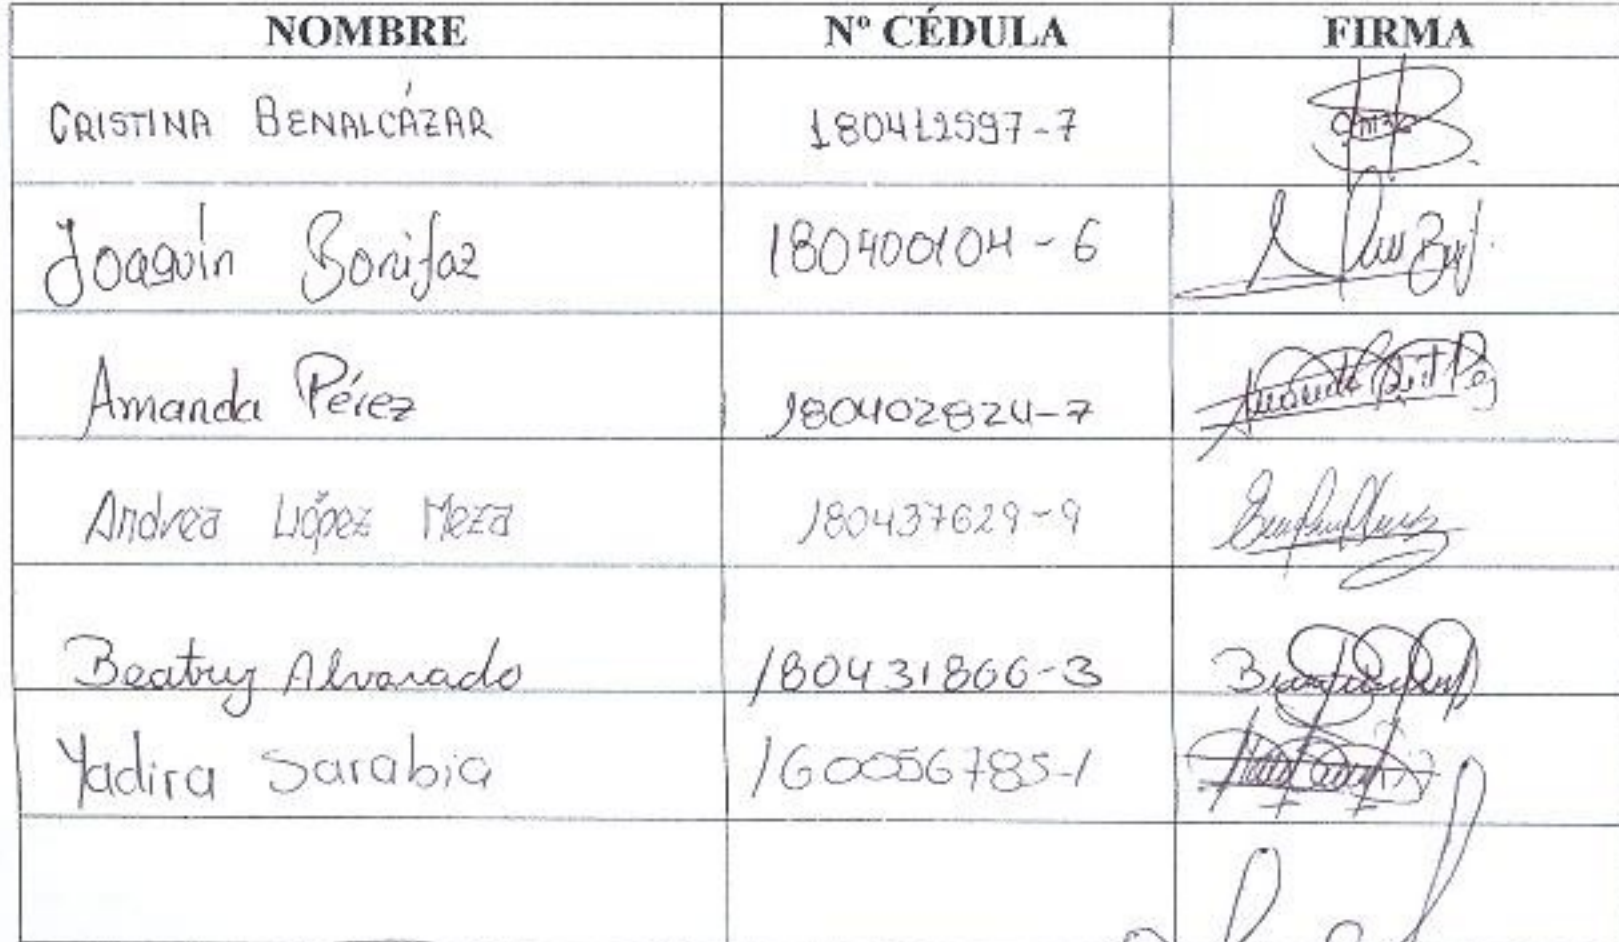 NOMBRE Nº CÉDULA FIRMA
CRISTINA BENALCÁZAR 180412597-7
Joaquín Bonifaz 180400104-6
Amanda Pérez 180402824-7
Andrea López Meza 180437629-9
Beatriz Alvarado 180431866-3
Yadira Sarabia 160056785-1